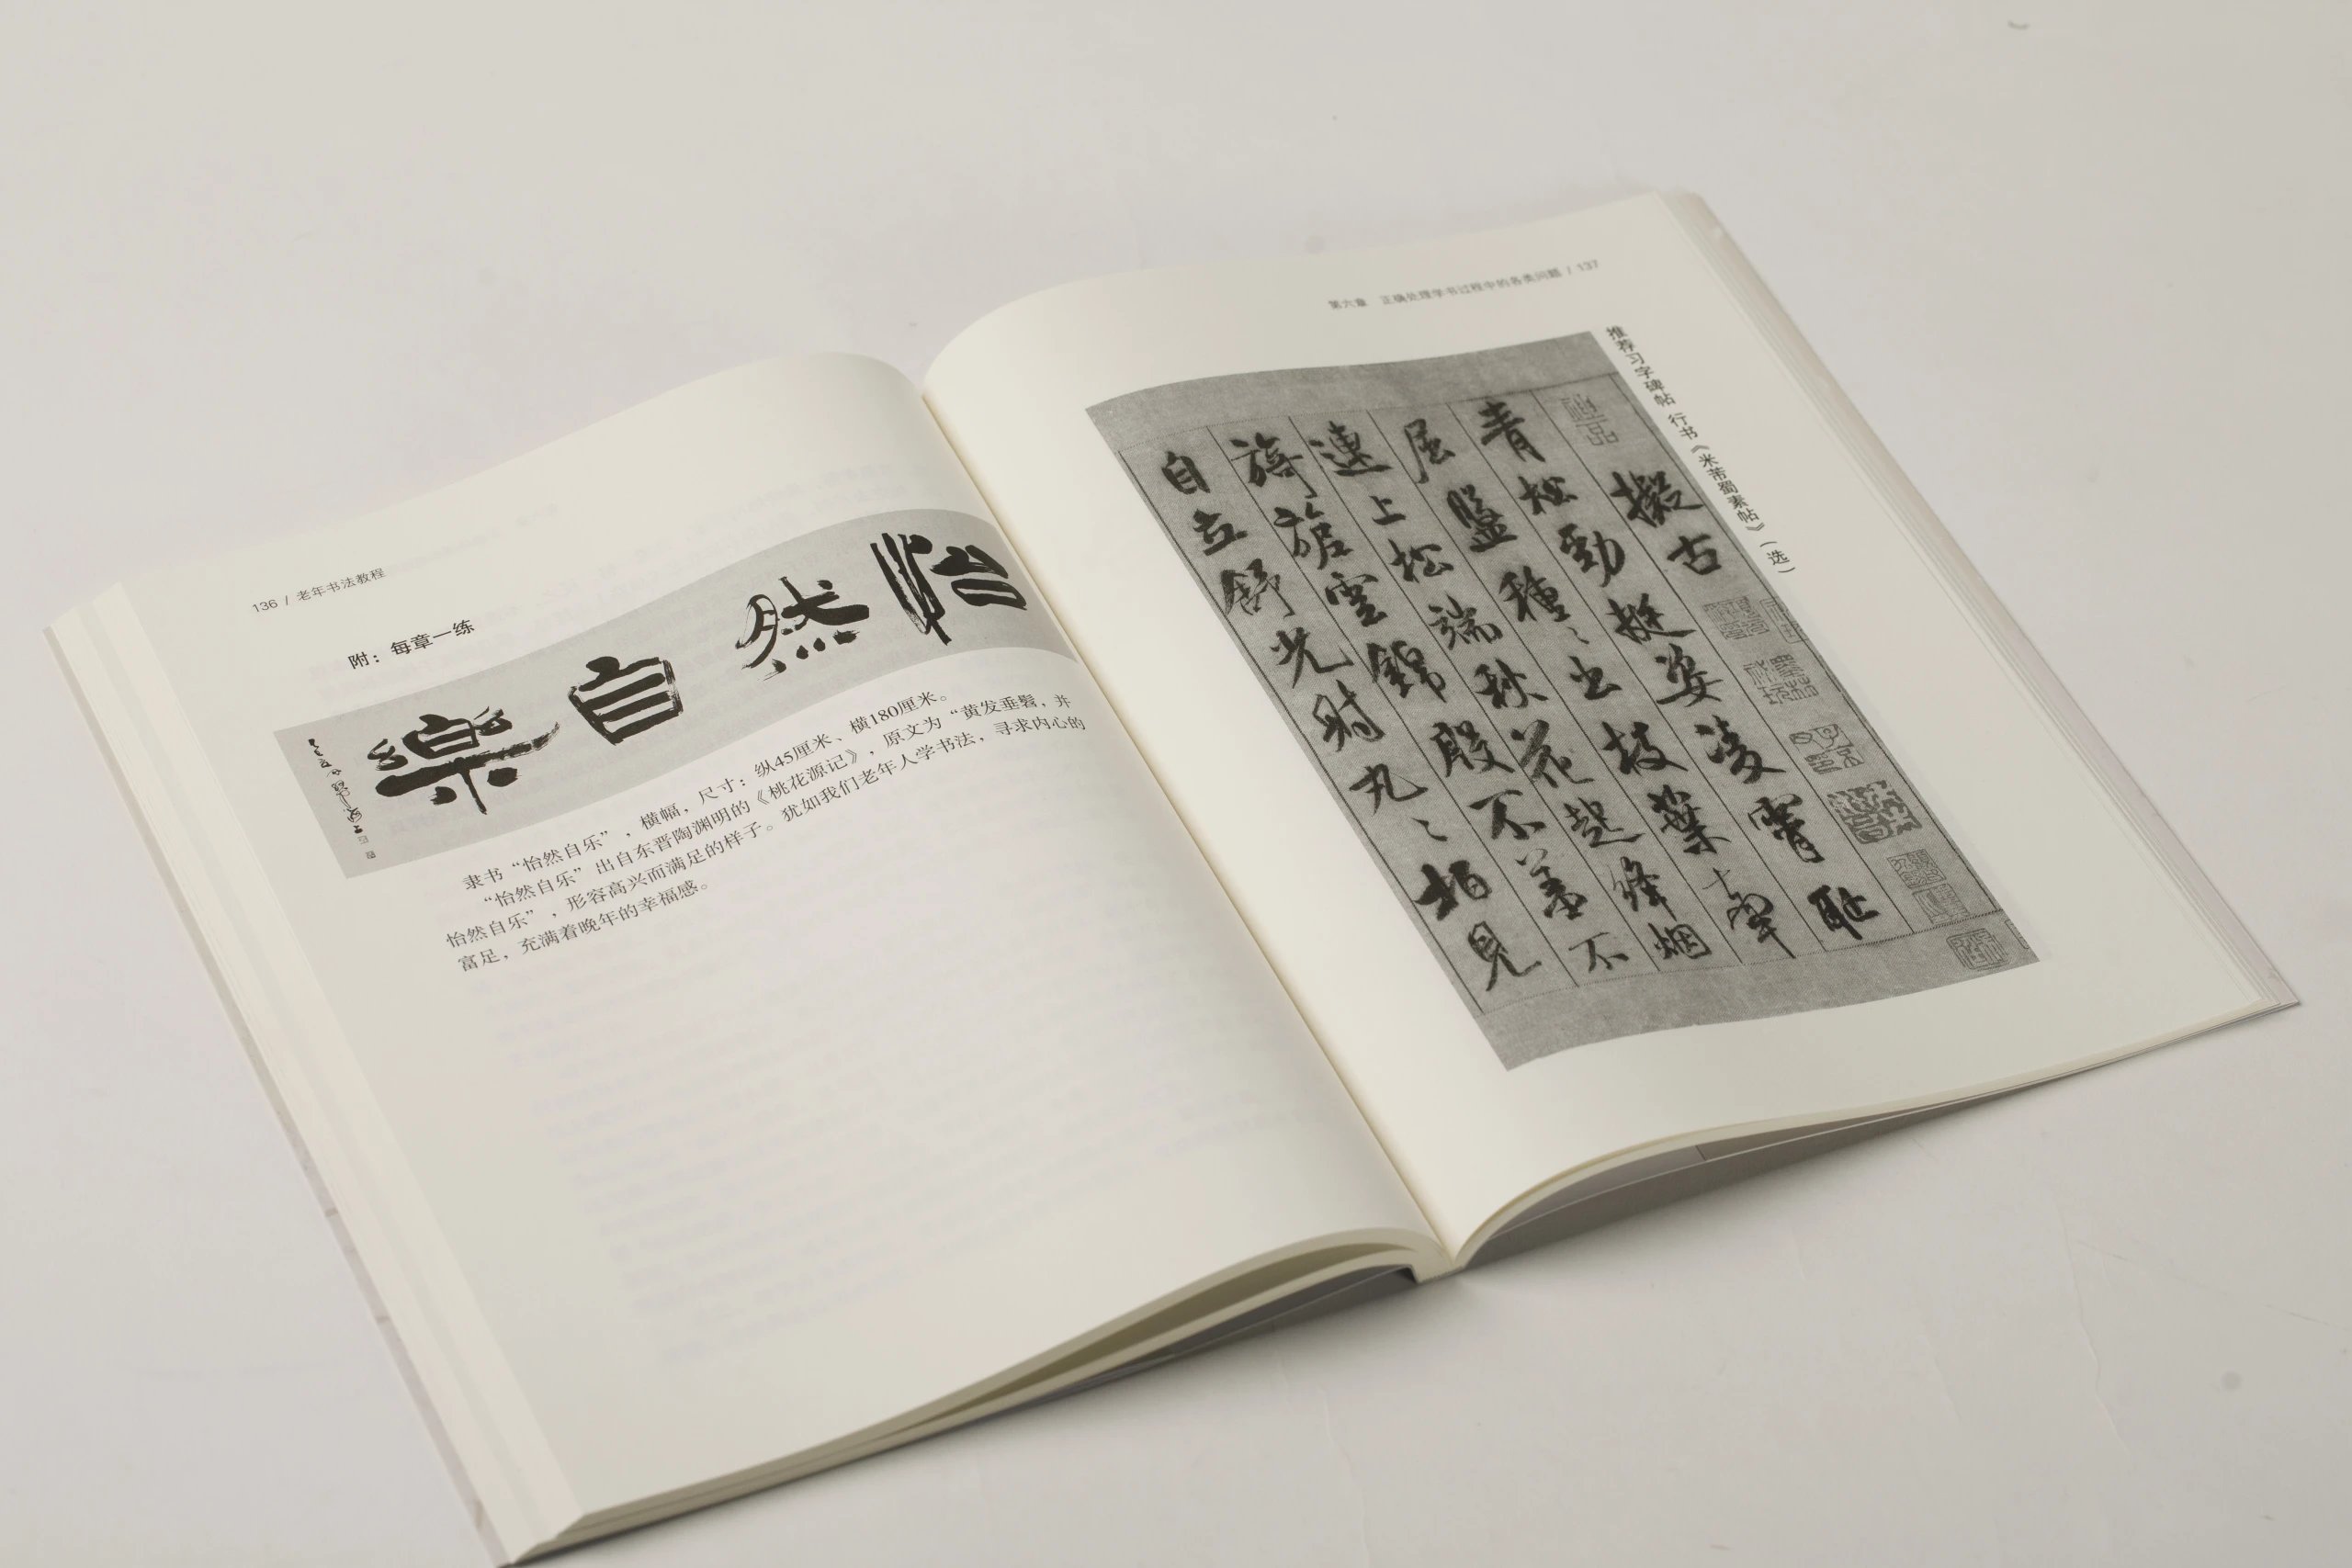 136 / 老年书法教程
附：每章一练
怡然自樂
隶书“怡然自乐”，横幅，尺寸：纵45厘米、横180厘米。
“怡然自乐”出自东晋陶渊明的《桃花源记》，原文为“黄发垂髫，并
怡然自乐”，形容高兴而满足的样子。犹如我们老年人学书法，寻求内心的
富足，充满着晚年的幸福感。
第六章 正确处理学书过程中的各类问题 / 137
推荐习字碑帖 行书《米芾蜀素帖》（选）
擬古
青松勁挺姿凌霄恥
屈盤種〻出枝葉牽
連上松端秋花起絳烟
旖旎雲錦殷不羞不
自立舒光射丸〻柏見